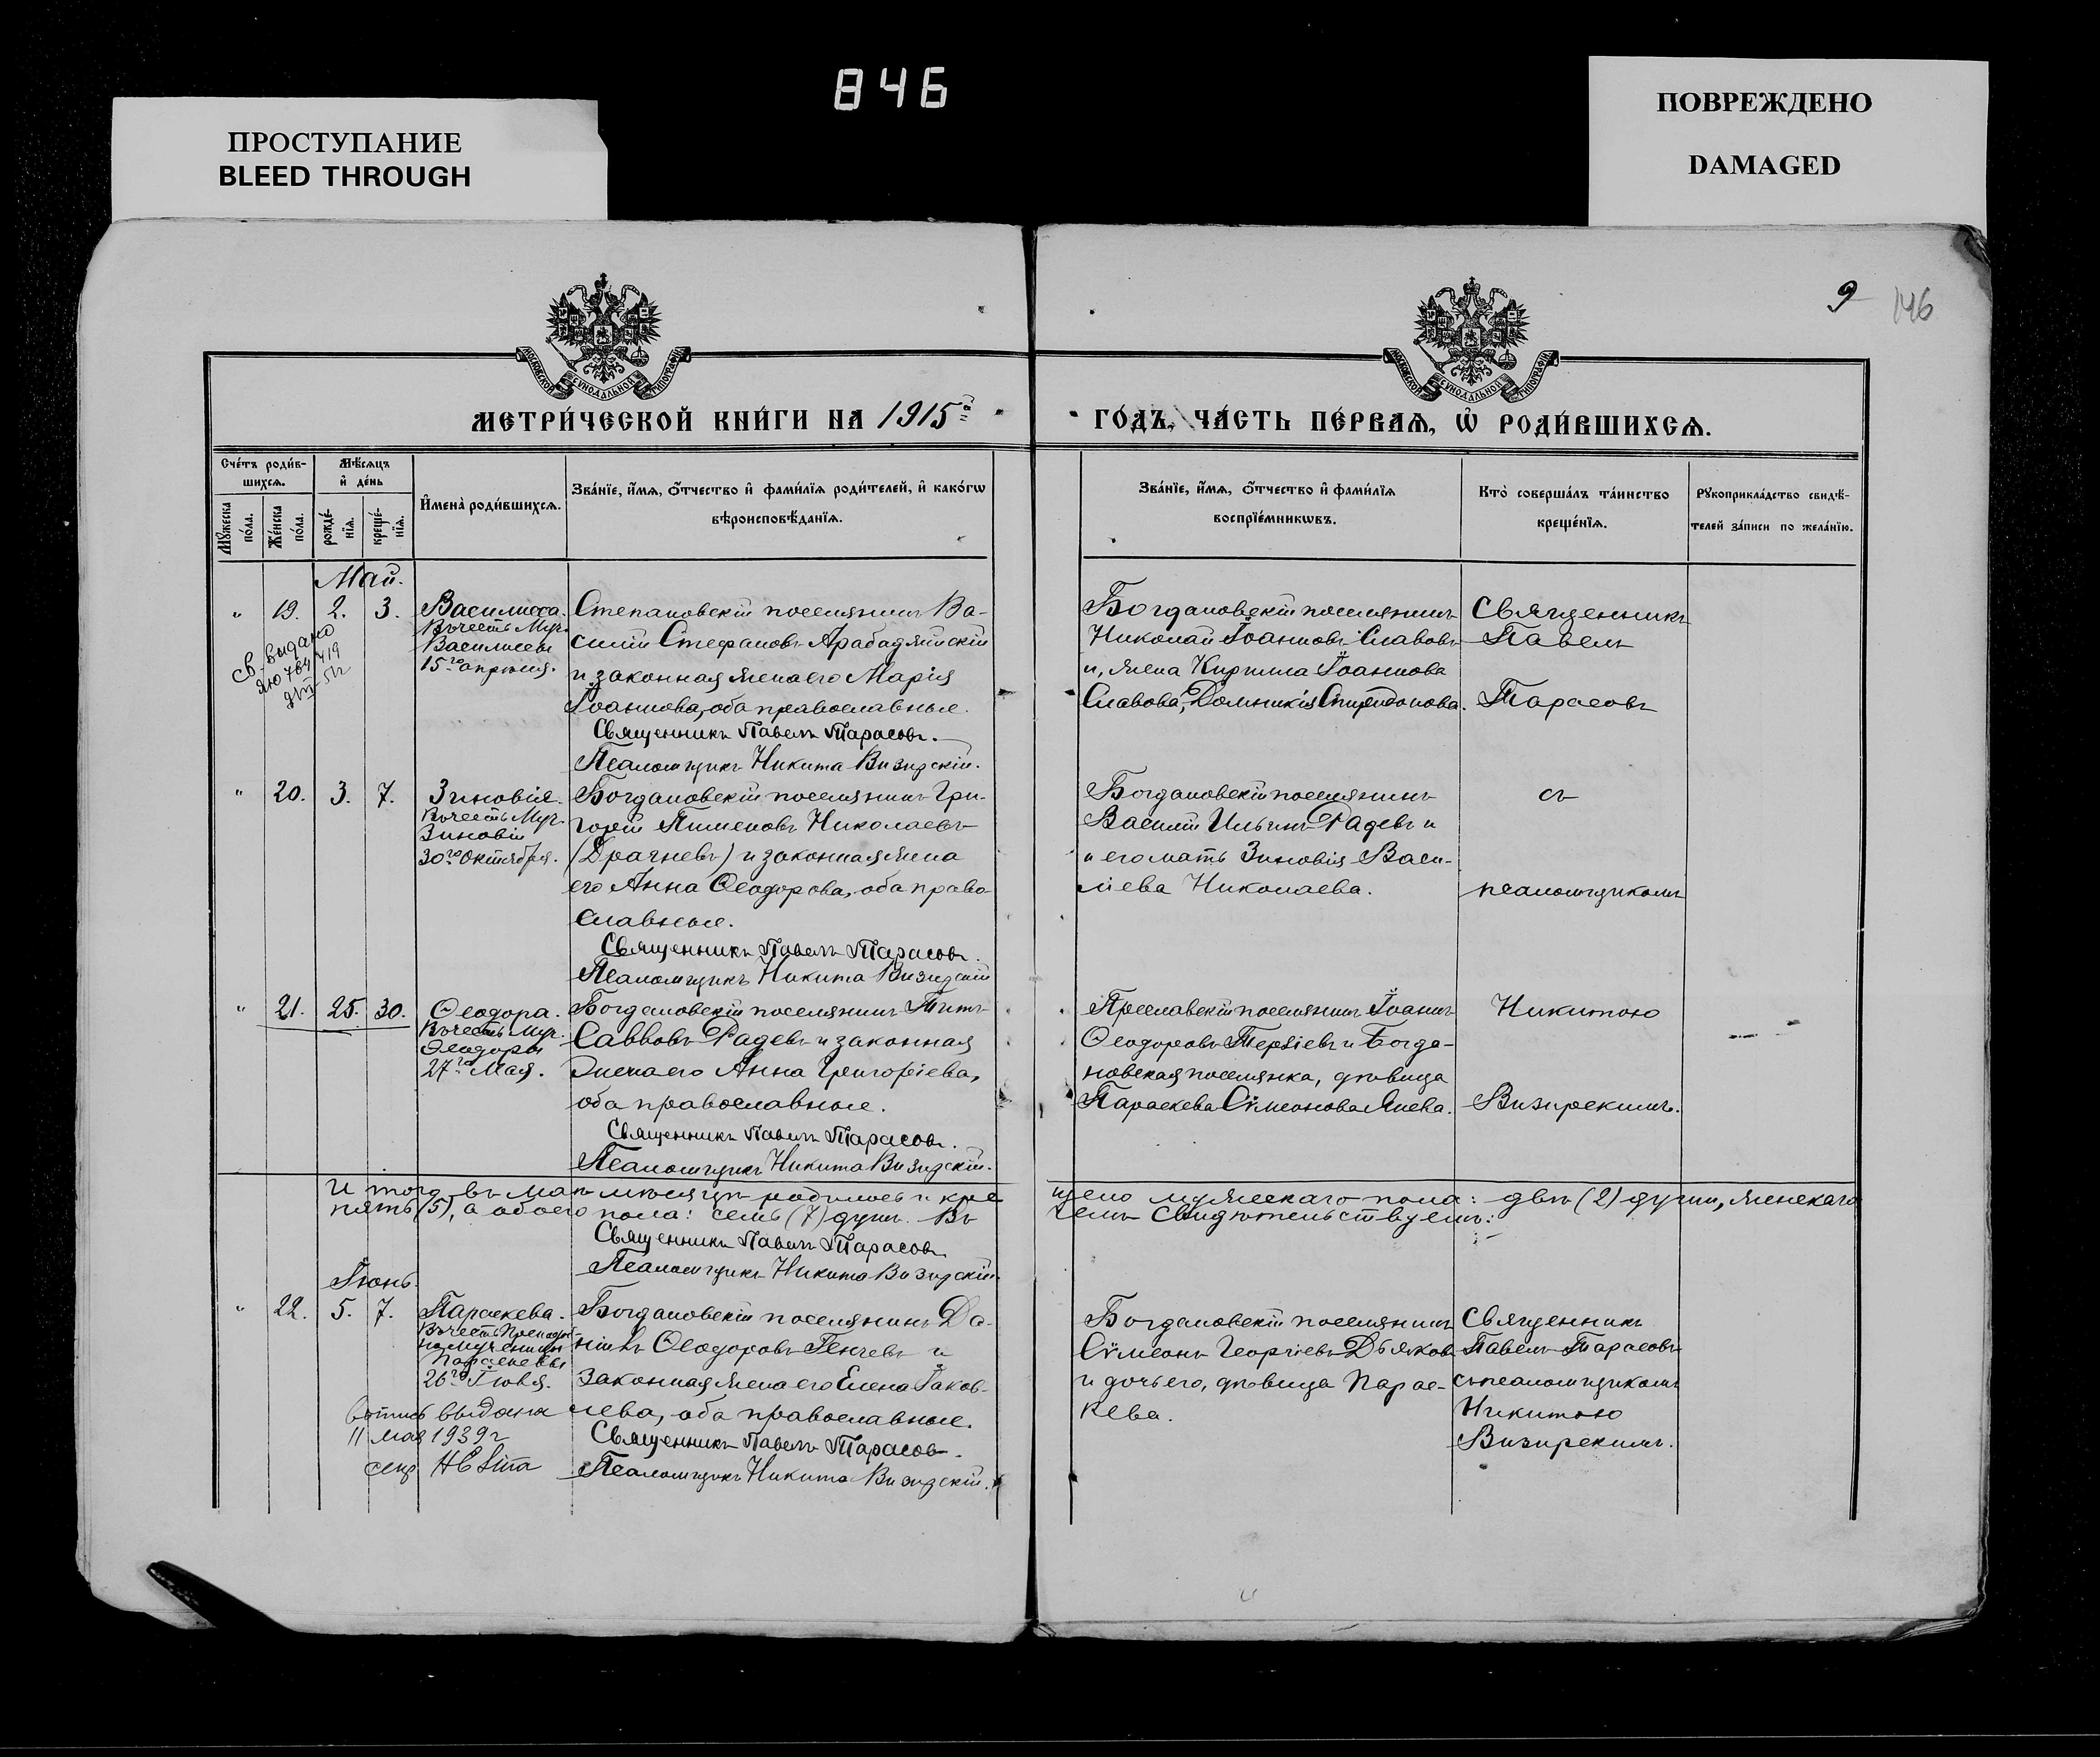 846
ПРОСТУПАНИЕ
BLEED THROUGH
ПОВРЕЖДЕНО
DAMAGED
9
146
МОСКОВСКОЙ СУНОДАЛЬНОЙ ТИПОГРАФІИ
МОСКОВСКОЙ СУНОДАЛЬНОЙ ТИПОГРАФІИ
МЕТРИ́ЧЕСКОЙ КНИ́ГИ НА 1915й
ГО́ДЪ, ЧА́СТЬ ПЕ́РВАѦ, Ѡ҆ РОДИ́ВШИХСѦ.
Сче́тъ роди́в-
шихсѧ.
Мѣ́сѧцъ
и҆ де́нь
Мꙋ́жеска
по́ла.
Же́нска
по́ла.
рожде́-
нїѧ.
креще́-
нїѧ.
И҆мена̀ роди́вшихсѧ.
Зва́нїе, и҆́мѧ, ѻ҆́тчество и҆ фами́лїѧ роди́телей, и҆ како́гѡ
вѣроисповѣ́данїѧ.
Зва́нїе, и҆́мѧ, ѻ҆́тчество и҆ фами́лїѧ
воспрїе́мникѡвъ.
Кто̀ соверша́лъ та́инство
креще́нїѧ.
Рꙋкоприкла́дство свидѣ́-
телей за́писи по жела́нїю.
Май.
" 19. 2. 3.
Св. выдано
Василисса.
Въ честь Муч.
Василиссы
15го апрѣля.
Степановскій поселянинъ Ва-
силій Стефановъ Арабаджійскій
и законная жена его Марія
Іоаннова, оба православные.
Священникъ Павелъ Тарасовъ.
Псаломщикъ Никита Визирскій.
Богдановскій поселянинъ
Николай Іоанновъ Славовъ
и, жена Кирилла Іоаннова
Славова, Домникія Спиридонова.
Священникъ
Павелъ
Тарасовъ
" 20. 3. 7.
Зиновія.
Въ честь Муч.
Зиновіи
30го Октября.
Богдановскій поселянинъ Гри-
горій Пименовъ Николаевъ
(Драгневъ) и законная жена
его Анна Ѳеодорова, оба право
славные.
Священникъ Павелъ Тарасовъ.
Псаломщикъ Никита Визирскій
Богдановскій поселянинъ
Василій Ильинъ Радевъ и
и его мать Зиновія Васи-
ліева Николаева.
съ
псаломщикомъ
" 21. 25. 30.
Ѳеодора.
Въ честь Муч.
Ѳеодоры
27го Мая.
Богдановскій поселянинъ Титъ
Савовъ Радевъ и законная
жена его Анна Григоріева,
оба православные.
Священникъ Павелъ Тарасовъ.
Псаломщикъ Никита Визирскій.
Преславскій поселянинъ Іоаннъ
Ѳеодоровъ Терзіевъ и Богда-
новская поселянка, дѣвица
Параскева Сѵмеонова Янева.
Никитою
Визирскимъ.
Итого въ маѣ мѣсяцѣ родилось и кре
щено мужескаго пола: двѣ (2) души, женскаго
пять (5), а обоего пола: семь (7) душъ. Въ
чемъ Свидѣтельствуемъ:
Священникъ Павелъ Тарасовъ
Псаломщикъ Никита Визирскій.
Іюнь.
" 22. 5. 7.
Параскева.
Въ честь Преподоб-
номученицы
Параскевы
26го Іюля.
выдана
11 мая 1939г
Богдановскій поселянинъ Да-
ніилъ Ѳеодоровъ Генчевъ и
законная жена его Елена Іаков-
лева, оба православные.
Священникъ Павелъ Тарасовъ.
Псаломщикъ Никита Визирскій.
Богдановскій поселянинъ
Сѵмеонъ Георгіевъ Дьяковъ
и дочь его, дѣвица Парас-
кева.
Священникъ
Павелъ Тарасовъ
съ псаломщикомъ
Никитою
Визирскимъ.